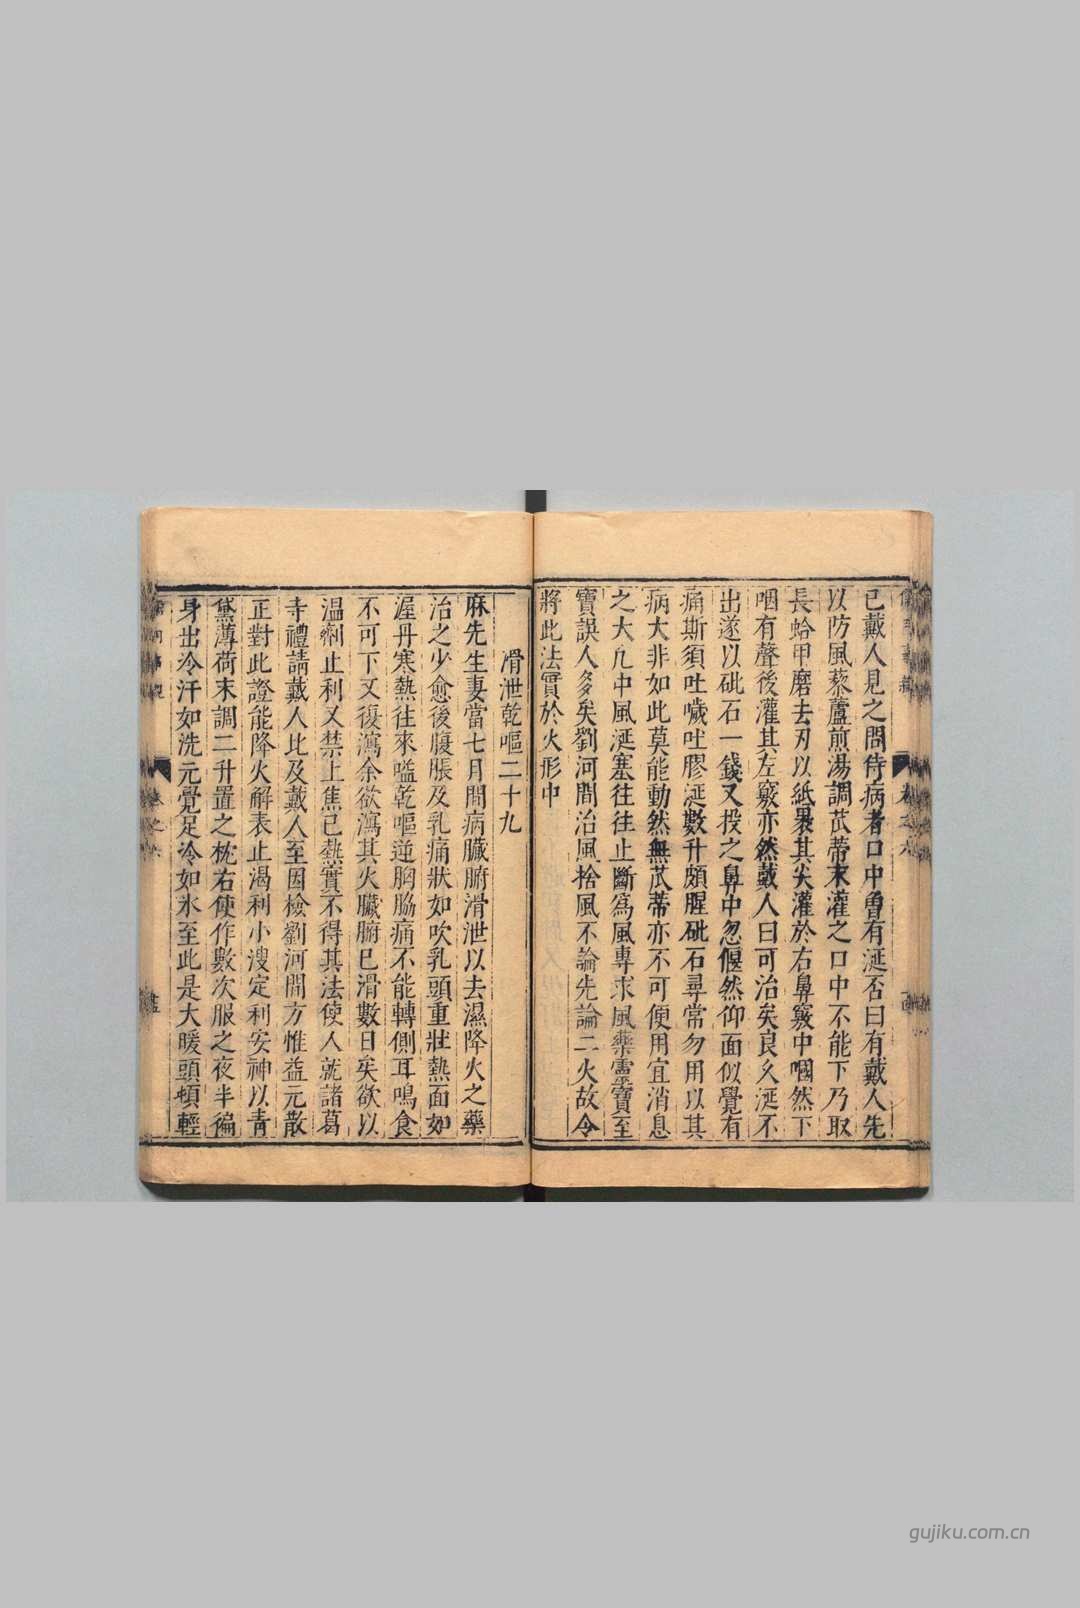 已戴人見之問侍病者口中曾有涎否曰有戴人先
以防風藜蘆煎湯調苽蒂末灌之口中不能下乃取
長蛤甲磨去刃以紙裹其尖灌於右鼻竅中嘓然下
咽有聲後灌其左竅亦然戴人曰可治矣良久涎不
出遂以砒石一錢又投之鼻中忽偃然仰面似覺有
痛斯須吐噦吐膠涎數升頗腥砒石尋常勿用以其
病大非如此莫能動然無苽蒂亦不可便用宜消息
之大凡中風涎塞往往止斷為風專求風藥靈寶至
寶誤人多矣劉河間治風捨風不論先論二火故令
將此法實於火形中
滑泄乾嘔二十九
麻先生妻當七月間病臟腑滑泄以去濕降火之藥
治之少愈後腹脹及乳痛狀如吹乳頭重壯熱面如
渥丹寒熱往來嗌乾嘔逆胸脇痛不能轉側耳鳴食
不可下又復瀉余欲瀉其火臟腑已滑數日矣欲以
溫劑止利又禁上焦已熱實不得其法使人就諸葛
寺禮請戴人比及戴人至因檢劉河間方惟益元散
正對此證能降火解表止渴利小溲定利安神以青
黛薄荷末調二升置之枕右使作數次服之夜半徧
身出冷汗如洗元覺足冷如氷至此是大暖頭頓輕
gujiku.com.cn